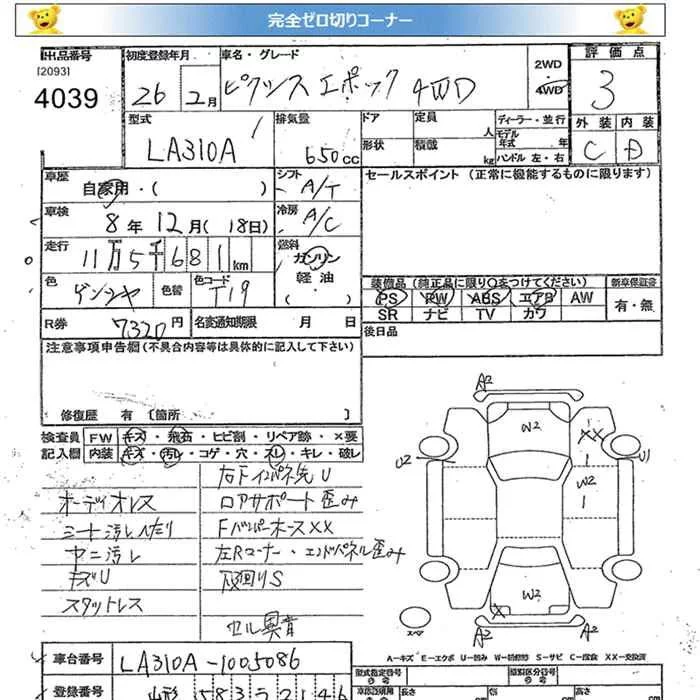 完全ゼロ切りコーナー
出品番号
[2093]
4039
初度登録年月
26 2月
車名・グレード
ピクシス エポック 4WD
2WD
4WD
評価点
3
型式
LA310A
排気量
650cc
ドア
形状
定員
人
積載
kg
ディーラー・並行
モデル年式 年
ハンドル 左・右
外装 内装
C D
車歴
自家用・( )
シフト
A/T
セールスポイント(正常に機能するものに限ります)
車検
8年 12月(18日)
冷房
A/C
走行
11万5千681km
燃料
ガソリン
軽油
・( )
色
色替
色コード
T19
装備品(純正品に限り○をつけてください)
新車保証書
PS PW ABS エアB AW
SR ナビ TV カワ
有・無
R券
7320円
名変通知期限 月 日
後日品
注意事項申告欄(不具合内容等は具体的に記入して下さい)
修復歴 有 [箇所 ]
検査員記入欄
FW キズ・飛石・ヒビ割・リペア跡・×要
内装 キズ・汚レ・コゲ・穴・スレ・キレ・破レ
オーディオレス
シート汚レヘタリ
ヤニ汚レ
キズU
スタットレス
右Fインパネ先U
ロアサポート歪み
Fバンパーホース××
左Rコーナー・エンドパネル歪み
下回りS
セル異音
A2
W2
××
U2
U1
W2
W2
×
A2
A2
スペア
A-キズ E-エクボ U-凹み W-補修跡 S-サビ C-腐食 XX-交換済
車台番号
LA310A-1005086
登録番号
山形 583
型式指定番号
類別区分番号
長さ
cm
幅
cm
高さ
cm